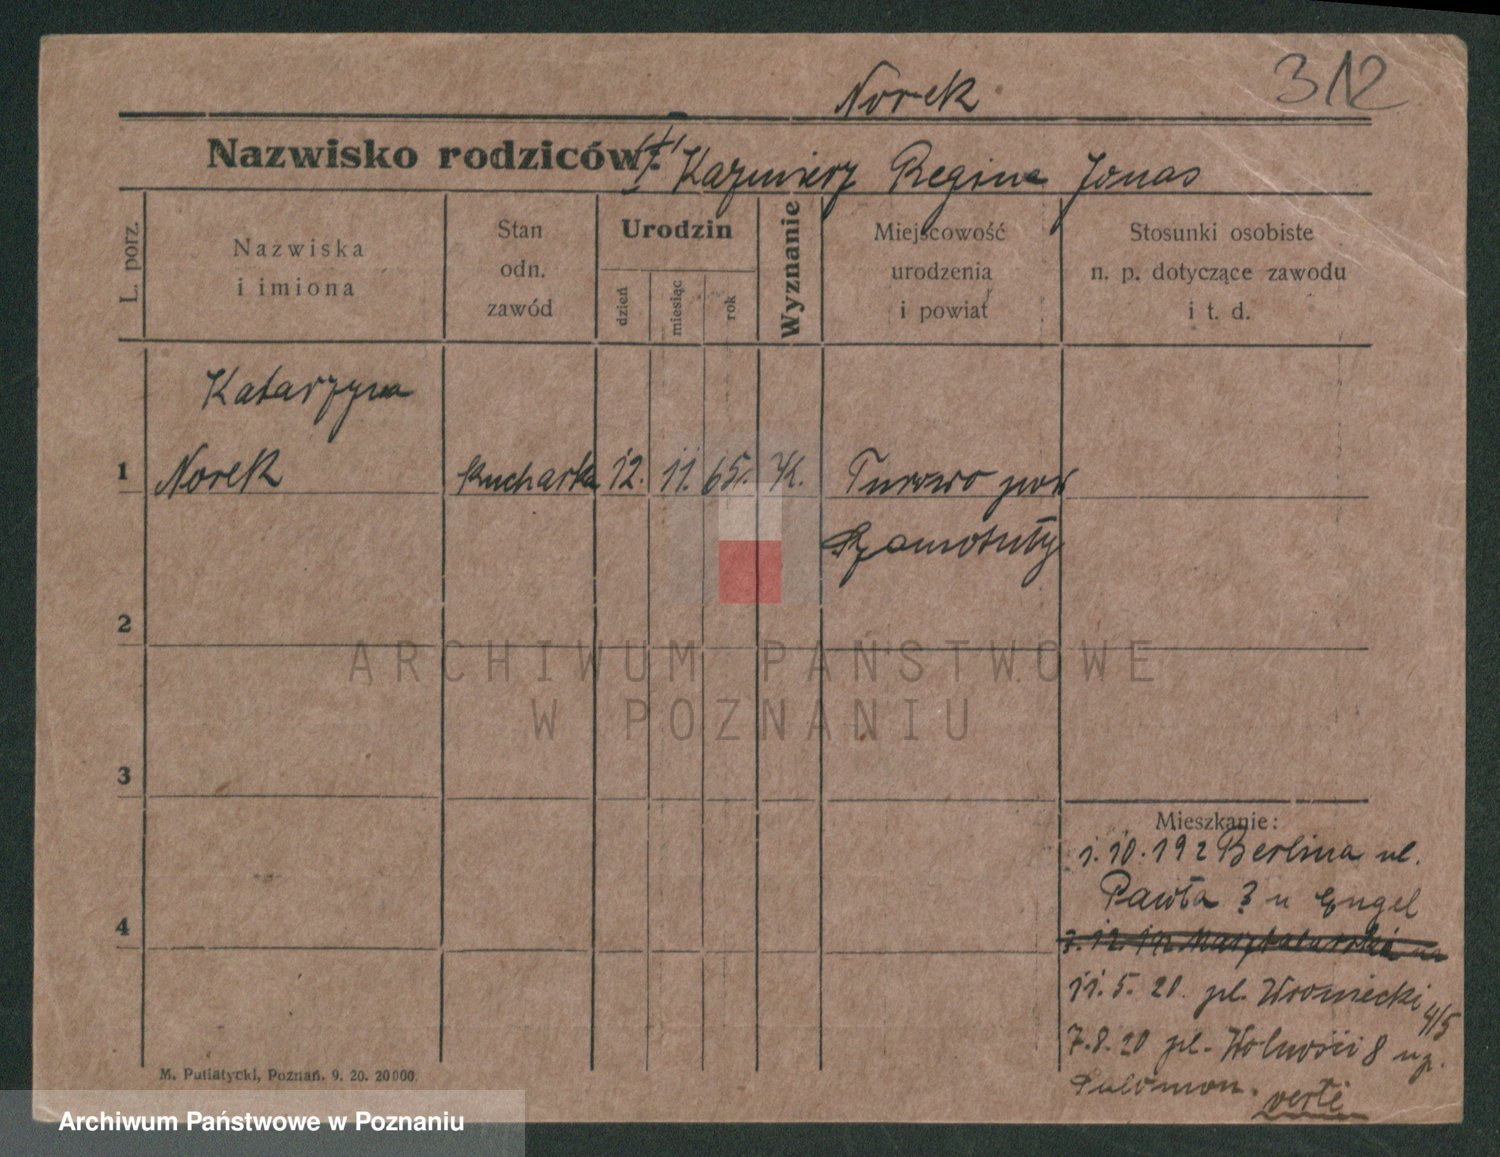 312
Norek
Nazwisko rodziców: Kazimierz Regina Jonas
L. porz.
Nazwiska
i imiona
Stan
odn.
zawód
Urodzin
dzień
miesiąc
rok
Wyznanie
Miejscowość
urodzenia
i powiat
Stosunki osobiste
n. p. dotyczące zawodu
i t. d.
Katarzyna
1 Norek Kucharka 12. 11. 65. K. pow
Szamotuły
2
3
4
Mieszkanie:
1.10.192 Berlina ul.
Pawła 3 u Engel
11.5.20. pl. Wroniecki 4/5
7.8.20 pl. Wolności 8
Salomon.
verte
M. Putiatycki, Poznań. 9. 20. 20000.
ARCHIWUM PAŃSTWOWE
W POZNANIU
Archiwum Państwowe w Poznaniu